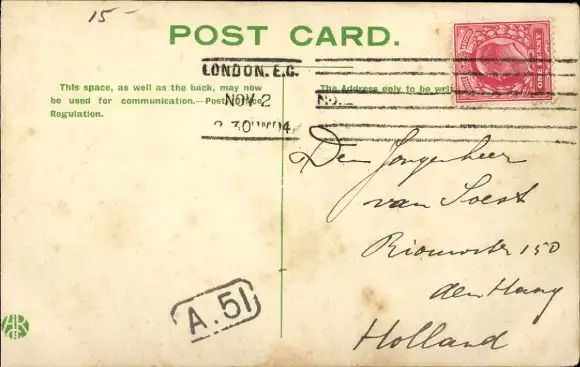 15-
POST CARD.
This space, as well as the back, may now
be used for communication.—Post Office
Regulation.
LONDON. E.C.
NOV 2
2 30 04
The Address only to be writ
ONE PENNY
Den Jongeheer
van Soest
150
den Haag
Holland
A.51